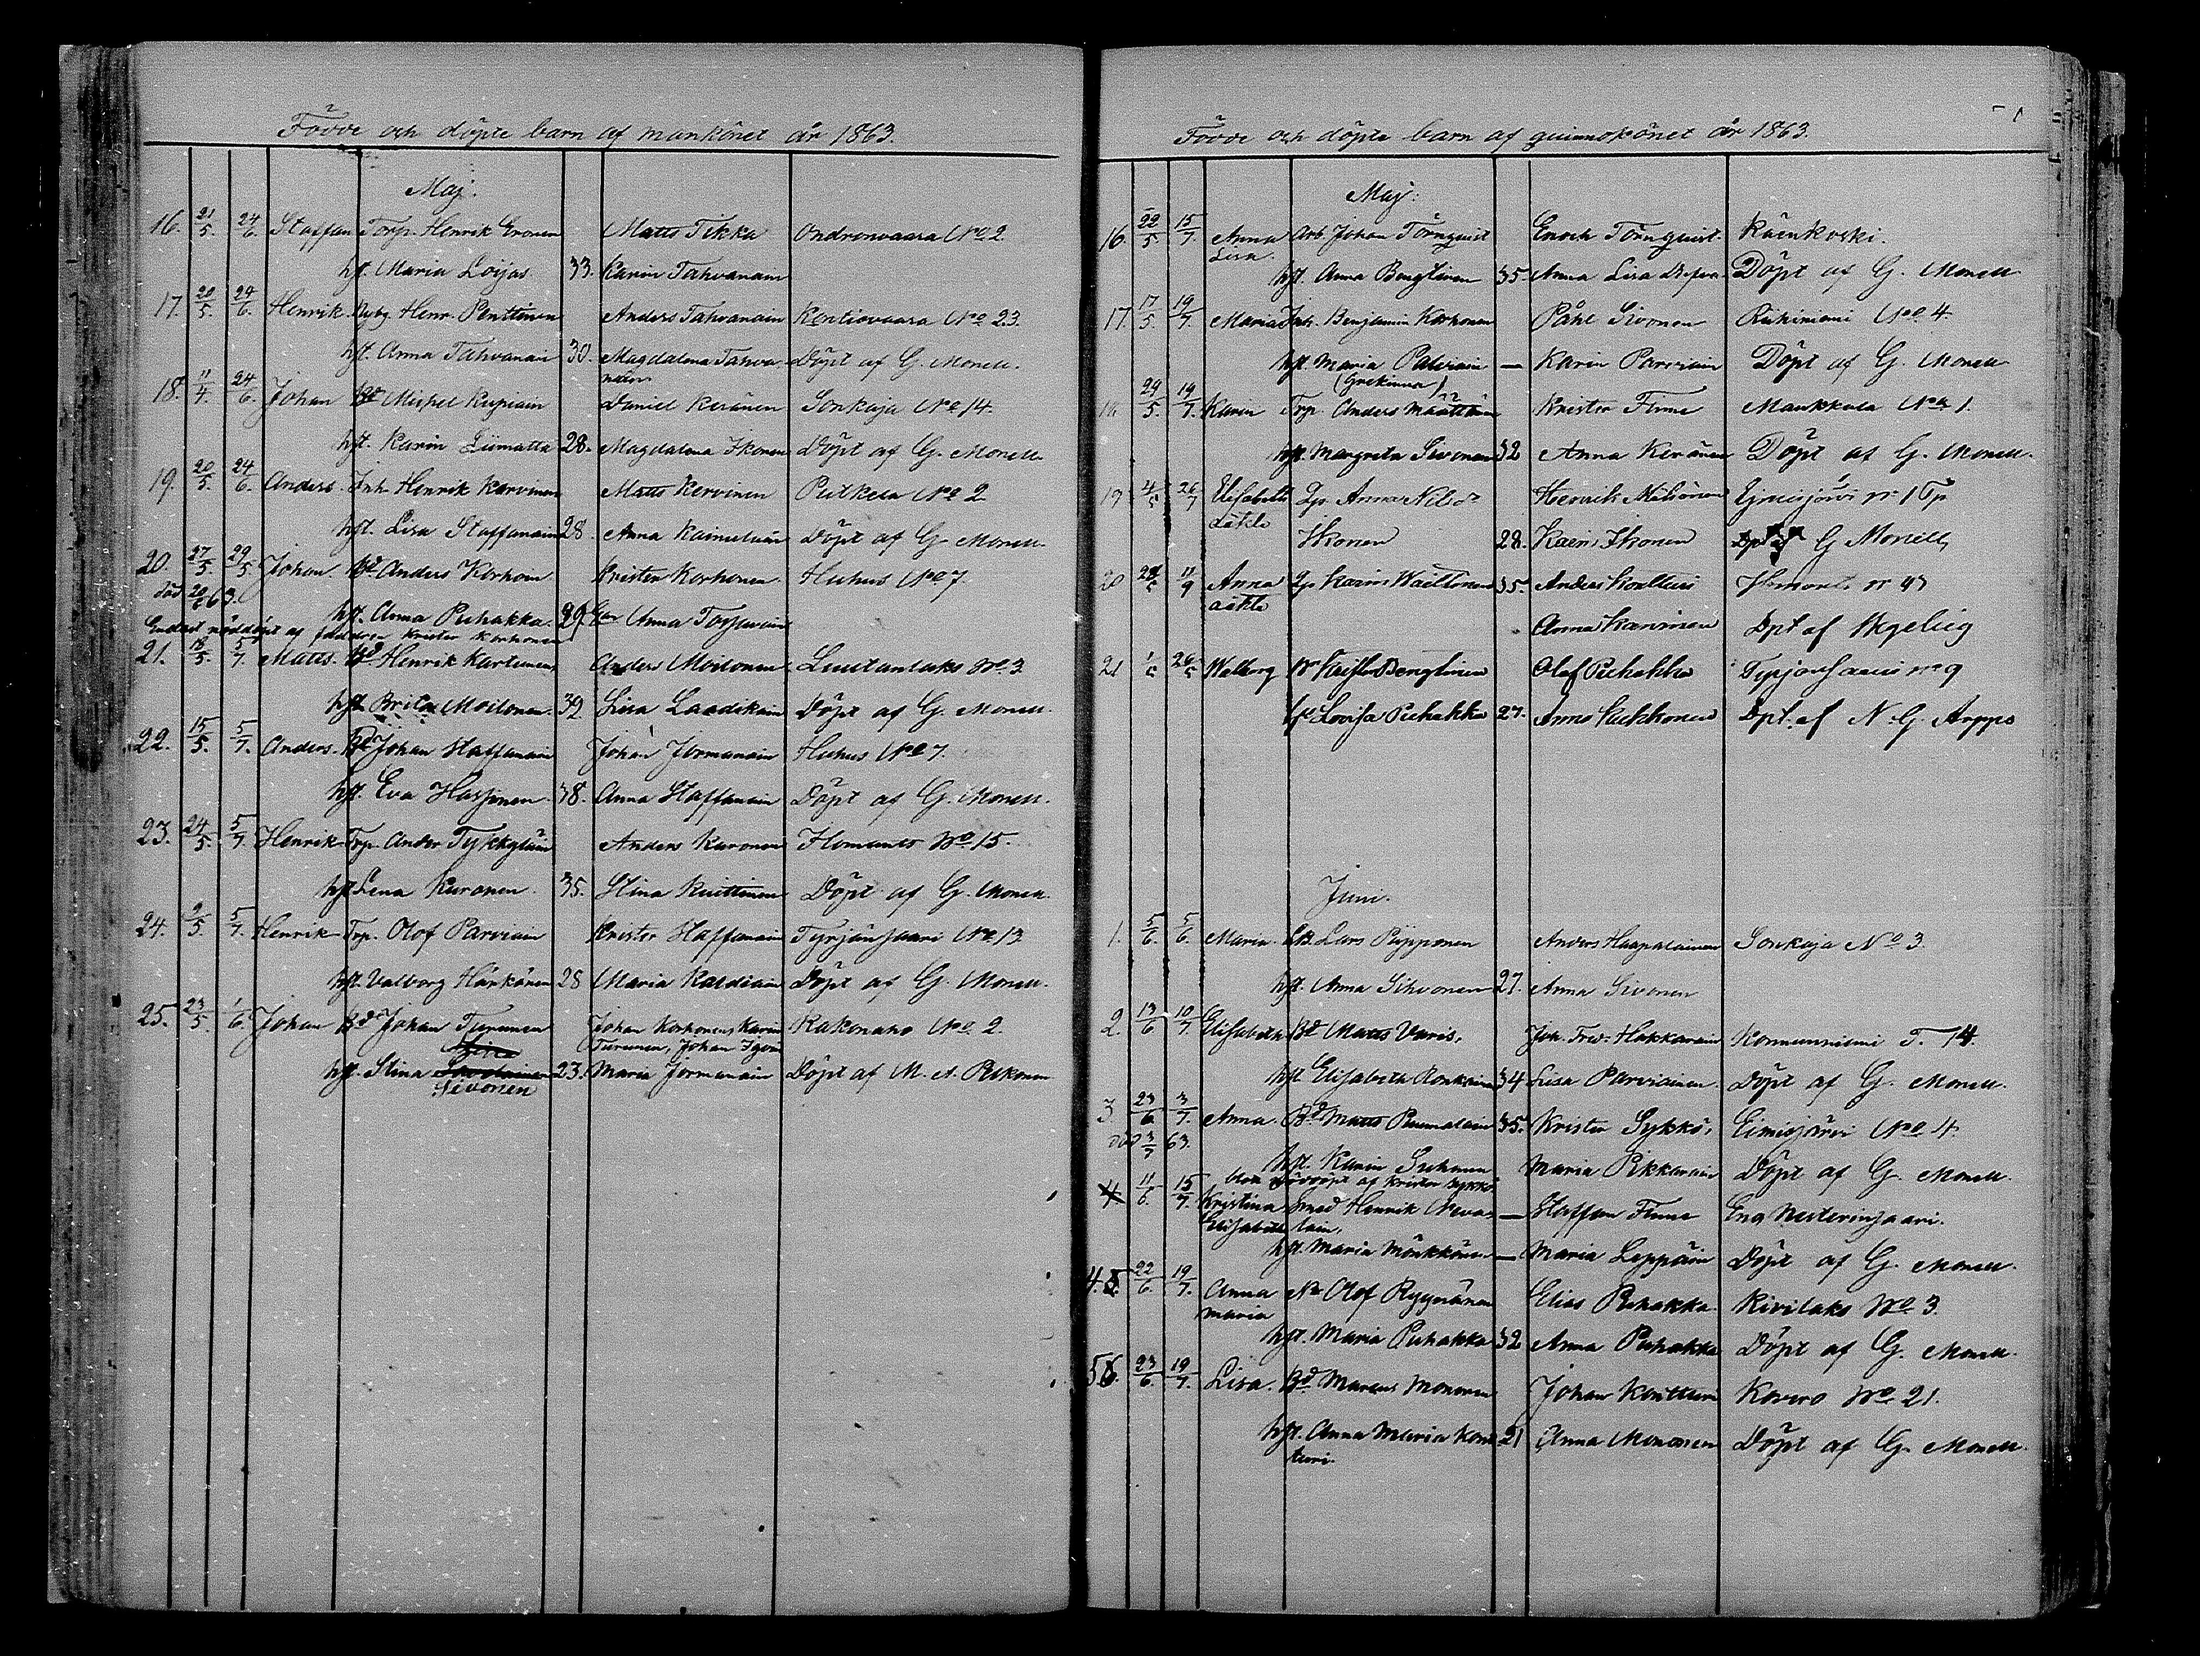 Födde och döpte barn af mankönet år 1863.
Maj.
16. 21/5. 24/6. Staffan Torp. Henrik Eronen Matts Tikka Ondronvaara No 2.
hft. Maria Loijas 33. Karin Tahvanain
17. 20/5. 24/6. Henrik. Nybg. Henr. Penttinen Anders Tahvanain Kontiovaara No 23.
hft. Anna Tahvanain 30. Magdalena Tahva- Döpt af G. Monell.
nain
18. 11/4. 24/6. Johan Bd Mickel Kuprain Daniel Keränen Sonkaja No 14.
hft. Karin Liimatta 28. Magdalena Ikonen Döpt af G. Monell.
19. 20/5. 24/6. Anders. Inh. Henrik Karvinen Matts Kervinen Putkela No 2
hft. Lisa Staffanain 28. Anna Kainulain Döpt af G. Monell.
20. 27/5. 29/5. Johan. Bd Anders Korhoin Krister Korhonen Huhus No 7.
död 20/6 63.
hft. Anna Puhakka. 29. Anna Torpvain
Endast nöddöpt af fadren Krister Korhonen
21. 18/5. 5/7. Matts. Bd Henrik Kartunen Anders Moilonen Luutanlaks No 3
hft. Brita Moilonen. 39. Lisa Laadikain Döpt af G. Monell.
22. 15/5. 5/7. Anders. Bd Johan Staffanain Johan Jormanain Huhus No 7.
hft. Eva Hasjonen. 38. Anna Staffanain Döpt af G. Monell.
23. 24/5. 5/7. Henrik Trp. Ander Tykkyläin Anders Kuronen Ilomants No 15.
hft. Lena Kuronen. 35. Stina Kuittinen Döpt af G. Monell.
24. 9/5. 5/7. Henrik Trp. Olof Parviain Krister Staffanain Tyrjänsaari No 13
hft. Valborg Härkönen 28 Maria Kardiain Döpt af G. Monell.
25. 23/5. 1/6. Johan Bd Johan Turunen Johan Korhonen, Karin Kakonaho No 2.
Turunen, Johan
hft. Stina 23. Maria Jormanain Döpt af M. A. Pelkonen
Sivonen
Födde och döpte barn af quinnokönet år 1863.
Maj.
16. 22/5 15/7. Anna Arb. Johan Törnquist Enoch Törnquist. Käenkoski.
Lisa.
hft. Anna Bengtinen 35. Anna Lisa Döpt af G. Monell
17. 17/5. 19/7. Maria Inh. Benjamin Korhonen Påhl Sivonen Ruhiniemi No 4.
hft. Maria Palviain — Karin Parviain Döpt af G. Monell
(Grekinna)
18. 29/5. 19/7. Karin Trp. Anders Määttäin Krister Finne Maukkula No 1.
hft. Margreta Sivonen 32 Anna Keränen Döpt af G. Monell.
19 4/5 26/7 Elisabeth Qp. Anna Nilsdr Henrik Eimisjärvi nr 1 Tp
oäkta
Ikonen 28. Karin Ikonen Dpt af G Monell,
20 11/9 Anna Qp Karin 35. Anders Kontturi Ilomants nr 43
oäkta
Anna Karvinen Dpt af
21 1/5 26/5 Walborg Bd Krister Bengtinen Olof Puhakka Tyrjänsaari nr 9
hu Lovisa Puhakka 27. Anna Kukkonen Dpt. af N. G. Arppe
Juni.
1. 5/6. 5/6. Maria. LB. Lars Piipponen Anders Haapalainen Sonkaja No 3.
hft. Anna Sihvonen 27. Anna Sivonen
2. 13/6. 10/7. Elisabeth Bd Matts Varis, Joh. Fred. Hakkarain Konnunniemi T. 14.
hft. Elisabeth Ronkain 34 Lisa Parviainen. Döpt af G. Monell.
3. 23/6. 3/7. Anna. Bd Matts Puumalain 35. Krister Sykkö, Eimisjärvi No 4.
död 3/7 63.
hft. Karin Suhonen Maria Pikkarain Döpt af G. Monell.
blott nöddöpt af Krister Sykkö
4. 11/6. 15/7. Kristina Smed Henrik Neva- — Staffan Finne Eno Nesterinsaari.
Elisabeth lain,
hft. Maria Mönkkönen — Maria Leppäin Döpt af G. Monell.
4. 5. 22/6. 19/7. Anna Nb Olof Ryynänen Elias Puhakka. Kivilaks No 3.
Maria
hft. Maria Puhakka 32 Anna Puhakka Döpt af G. Monell.
5 6. 23/6. 19/7. Lisa. Bd Marcus Mononen Johan Kontturi Kovero No 21.
hft. Anna Maria Kont 21 Anna Mononen Döpt af G. Monell.
turi.